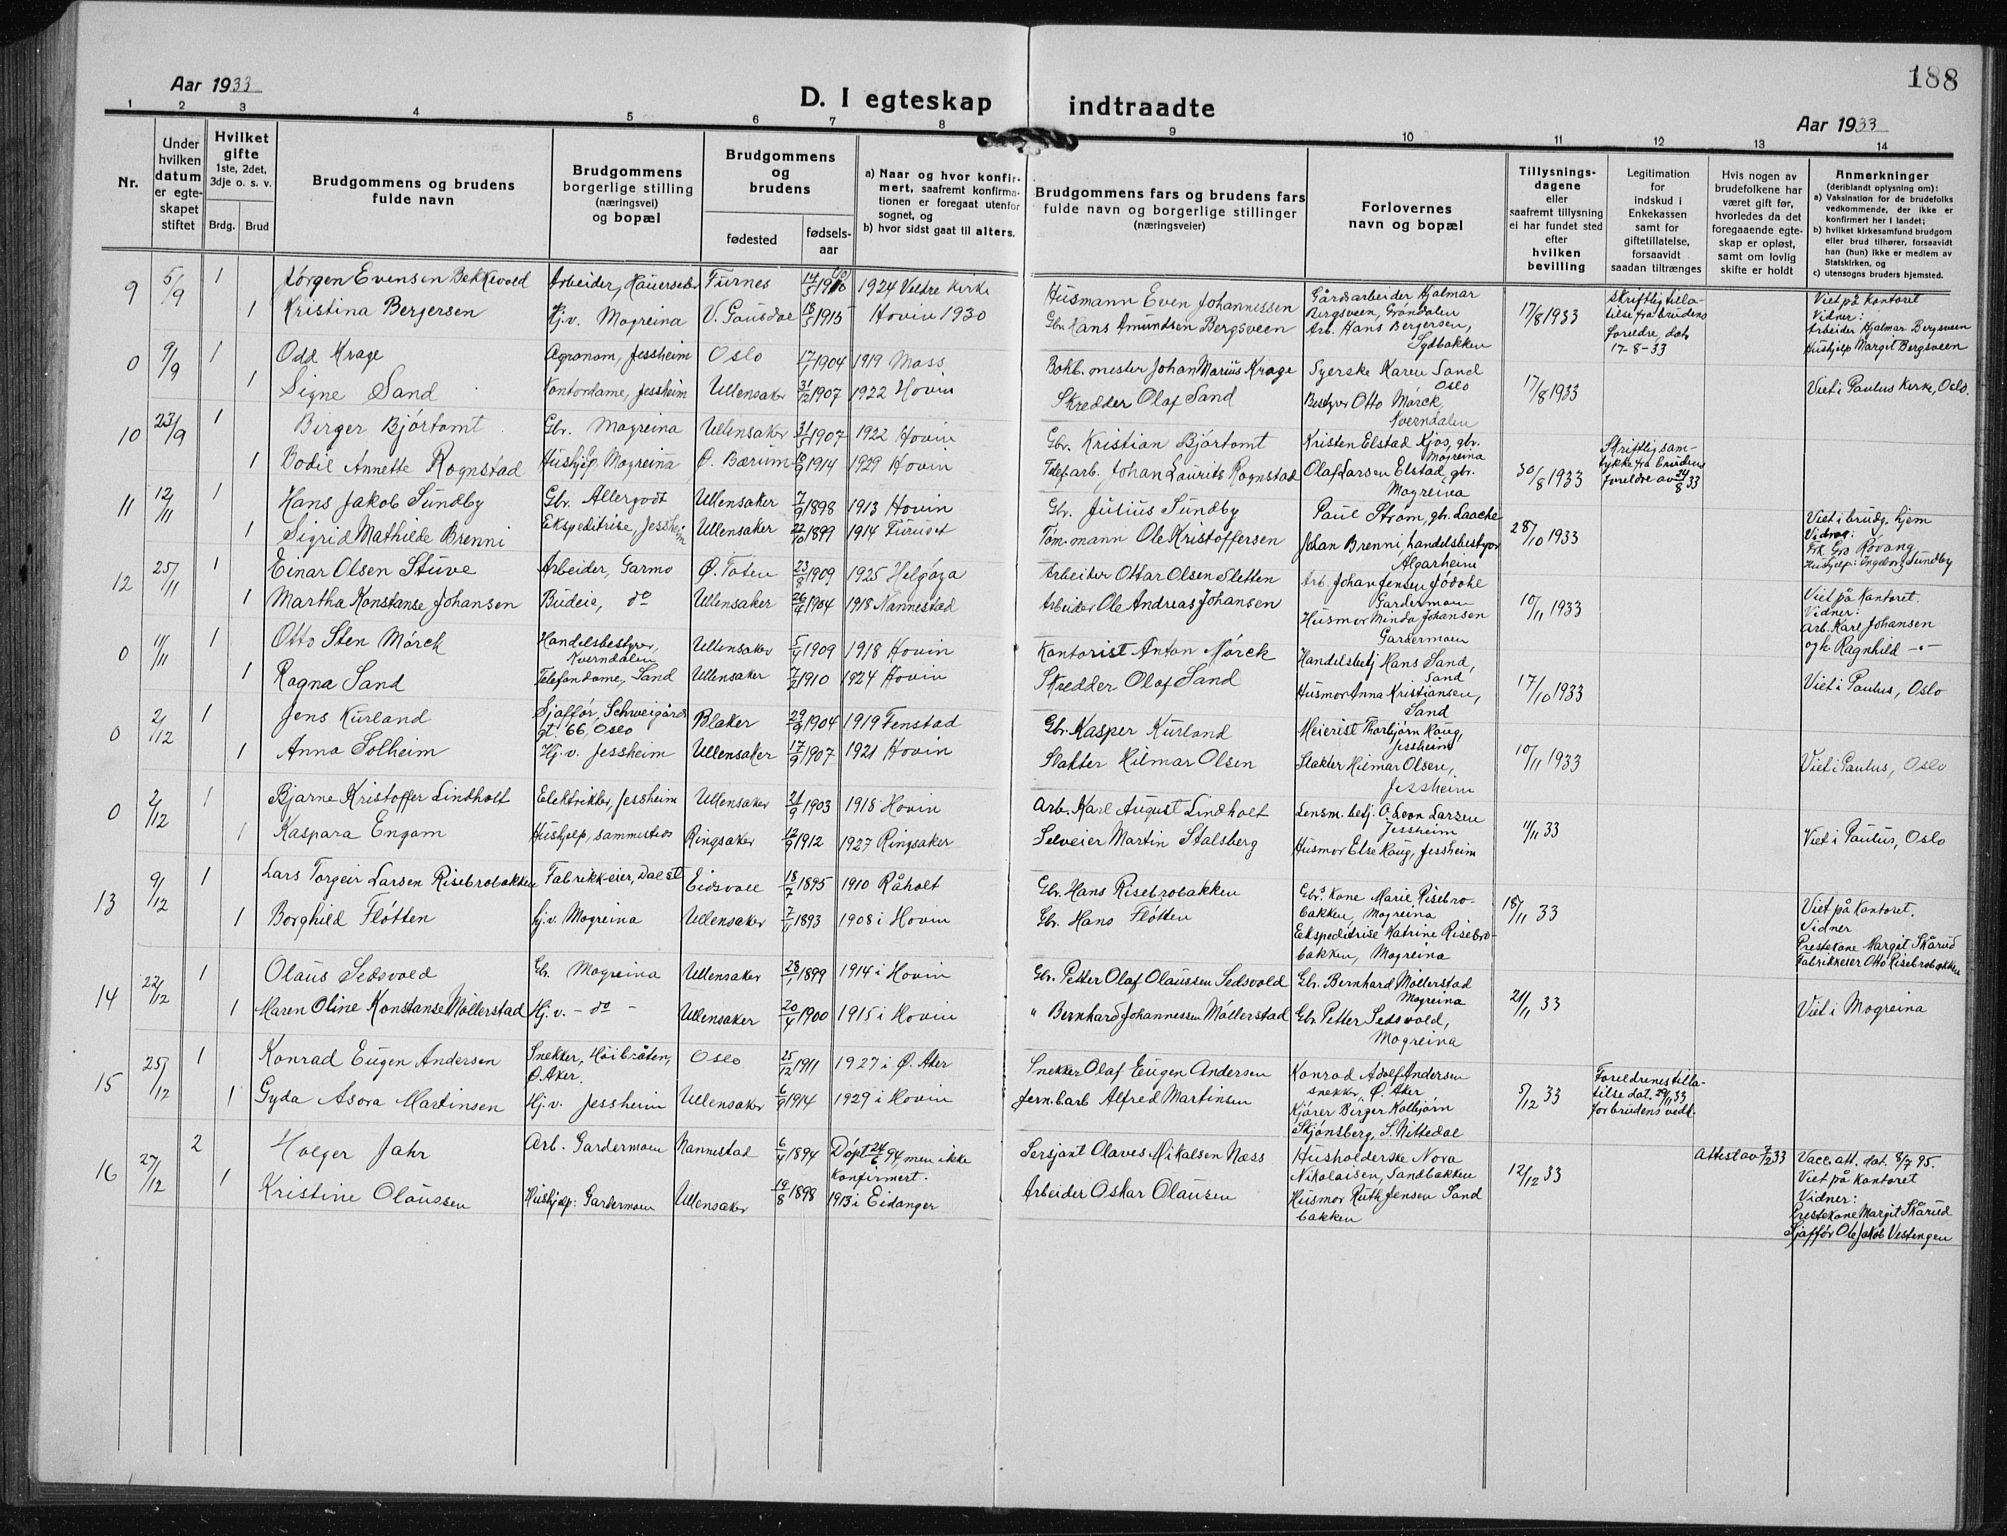 188
Aar 1933
D. I egteskap indtraadte
Aar 1933
1 2 3 4 5 6 7 8 9 10 11 12 13 14
Nr.
Under hvilken datum er egteskapet stiftet
Hvilket gifte
1ste, 2det, 3dje o. s. v.
Brdg. Brud
Brudgommens og brudens fulde navn
Brudgommens borgerlige stilling (næringsvei) og bopæl
Brudgommens og brudens
fødested
fødselsaar
a) Naar og hvor konfirmert, saafremt konfirmationen er foregaat utenfor sognet, og
b) hvor sidst gaat til alters.
Brudgommens fars og brudens fars fulde navn og borgerlige stillinger (næringsveier)
Forlovernes navn og bopæl
Tillysningsdagene eller saafremt tillysning ei har fundet sted efter hvilken bevilling
Legitimation for indskud i Enkekassen samt for giftetillatelse, forsaavidt saadan tiltrænges
Hvis nogen av brudefolkene har været gift før, hvorledes da det foregaaende egteskap er opløst, samt om lovlig skifte er holdt
Anmerkninger
(deriblandt oplysning om):
a) Vaksination for de brudefolks vedkommende, der ikke er konfirmert her i landet;
b) hvilket kirkesamfund brudgom eller brud tilhører, forsaavidt han (hun) ikke er medlem av Statskirken, og
c) utensogns bruders hjemsted.
9 5/9 1 Jørgen Evensen Bekkevold Arbeider, Hauerseter Furnes 14/5 1906 1924 Veldre Kirke Husmann Even Johannessen Gårdarbeider Hjalmar Bergsveen, Grøndalen
1 Kristina Bergersen Hj.v. Mogreina V. Gausdal 18/5 1915 Hovin 1930 Gbr. Hans Amundsen Bergsveen Arb. Hans Bergersen, Sydbakken 17/8 1933 Skriftlig tillatelse fra brudens foreldre, dat. 17-8-33 Viet på kontoret Vidner: Arbeider Hjalmar Bergsveen Hushjelp Margit Bergsveen
0 9/9 1 Odd Krage Agronom, Jessheim Oslo 17/1 1904 1919 Moss Bokb.mester Johan Marius Krage Syerske Karen Sand Oslo
1 Signe Sand Kontordame, Jessheim Ullensaker 31/12 1907 1922 Hovin Skredder Olaf Sand Bestyrer Otto Mørck, Kverndalen 17/8 1933 Viet i Paulus Kirke, Oslo.
10 23/9 1 Birger Bjørtomt Gbr. Mogreina Ullensaker 31/5 1907 1922 Hovin Gbr. Kristian Bjørtomt Kristen Elstad Kjos, gbr. Mogreina
1 Bodil Annette Rognstad Hushjelp, Mogreina Ø. Bærum 18/9 1914 1929 Hovin Telef.arb. Johan Laurits Rognstad Olaf Larsen Elstad, gbr. Mogreina 30/8 1933 Skriftlig samtykke fra brudens foreldre av 24/8 33
11 12/11 1 Hans Jakob Sundby Gbr. Allergodt Ullensaker 7/9 1898 1913 Hovin Gbr. Julius Sundby Paul Strøm, gbr. Laache
1 Sigrid Mathilde Brenni Ekspeditrise, Jessheim Ullensaker 22/10 1899 1914 Furuset Tømmann Ole Kristoffersen Johan Brenni, handelsbestyrer Algarheim 28/10 1933 Viet i brudg. hjem Vidner: Frk. Gro Rovang Hushjelp: Ingeborg Sundby
12 25/11 1 Einar Olsen Stuve Arbeider, Garmo Ø. Toten 23/8 1909 1925 Helgøya Arbeider Ottar Olsen Sletten Arb. Johan Jensen Jødahl Gardermoen
1 Martha Konstanse Johansen Budeie, do Ullensaker 26/4 1904 1918 Nannestad Arbeider Ole Andreas Johansen Husmor Minda Johansen Gardermoen 10/11 1933 Viet på Kontoret. Vidner: Arb. Karl Johansen og h. Ragnhild -"-
0 11/11 1 Otto Sten Mørck Handelsbestyrer, Kverndalen Ullensaker 5/4 1909 1918 Hovin Kontorist Anton Mørck Handelsbetj. Hans Sand, Sand
1 Ragna Sand Telefondame, Sand Ullensaker 7/2 1910 1924 Hovin Skredder Olaf Sand Husmor Anna Kristiansen, Sand 17/10 1933 Viet i Paulus, Oslo
0 2/12 1 Jens Kurland Sjaffør, Schweigårds gt. 66, Oslo Blaker 29/9 1904 1919 Fenstad Gbr. Kasper Kurland Meierist Thorbjørn Haug, Jessheim
1 Anna Solheim Hj.v. Jessheim Ullensaker 17/9 1907 1921 Hovin Slakter Hilmar Olsen Slakter Hilmar Olsen, Jessheim 10/11 1933 Viet i Paulus, Oslo
0 2/12 1 Bjarne Kristoffer Lindholt Elektriker, Jessheim Ullensaker 21/9 1903 1918 Hovin Arb. Karl August Lindholt Lensm. betj. O. Leon Larsen Jessheim
1 Kaspara Engom Hushjelp, sammesteds Ringsaker 12/9 1912 1927 Ringsaker Selveier Martin Stalsberg Husmor Else Haug, Jessheim 11/11 33 Viet i Paulus, Oslo
13 9/12 1 Lars Torgeir Larsen Risebrobakken Fabrikkeier, Dal st Eidsvoll 18/7 1895 1910 Råholt Gbr. Hans Risebrobakken Gbr.s Kone Marie Risebrobakken, Mogreina
1 Borghild Fløtten Hj.v. Mogreina Ullensaker 7/11 1893 1908 i Hovin Gbr. Hans Fløtten Ekspeditrise Katrine Risebrobakken, Mogreina 18/11 33 Viet på Kontoret. Vidner Prestekone Margit Skårud Fabrikkeier Otto Risebrobakken
14 22/12 1 Olaus Sedsvold Gbr. Mogreina Ullensaker 28/1 1899 1914 i Hovin Gbr. Petter Olaf Olaussen Sedsvold Gbr. Bernhard Møllerstad Mogreina
1 Maren Oline Konstanse Møllerstad Hj.v. - do - Ullensaker 20/4 1900 1915 i Hovin " Bernhard Johannessen Møllerstad Gbr. Petter Sedsvold, Mogreina 21/11 33 Viet i Mogreina
15 25/12 1 Konrad Eugen Andersen Snekker, Høibråten, Ø. Aker. Oslo 25/12 1911 1927 i Ø. Aker Snekker Olaf Eugen Andersen Konrad Adolf Andersen snekker, Ø. Aker
1 Gyda Asora Martinsen Hj.v. Jessheim Ullensaker 6/9 1914 1929 i Hovin Jernb.arb Alfred Martinsen Kjører Birger Kolbjørn Skjønsberg, S. Nittedal 5/12 33 Foreldrenes tillatelse dat. 29/11 33 for brudens vedk.
16 27/12 2 Holger Jahr Arb. Gardermoen Nannestad 6/4 1894 Døpt 24/6 94, men ikke Konfirmert. Sersjant Olaves Mikalsen Næss Husholderske Nora Nikolaisen, Sandbakken
1 Kristine Olaussen Hushjelp: Gardermoen Ullensaker 19/8 1898 1913 i Eidanger Arbeider Oskar Olausen Husmor Ruth Jensen Sandbakken 12/12 33 Attest av 7/2 33 Vacc. att. dat. 8/7 95. Viet på Kontoret Vidner: Prestekone Margit Skårud Sjaffør Ole Jakob Vestengen